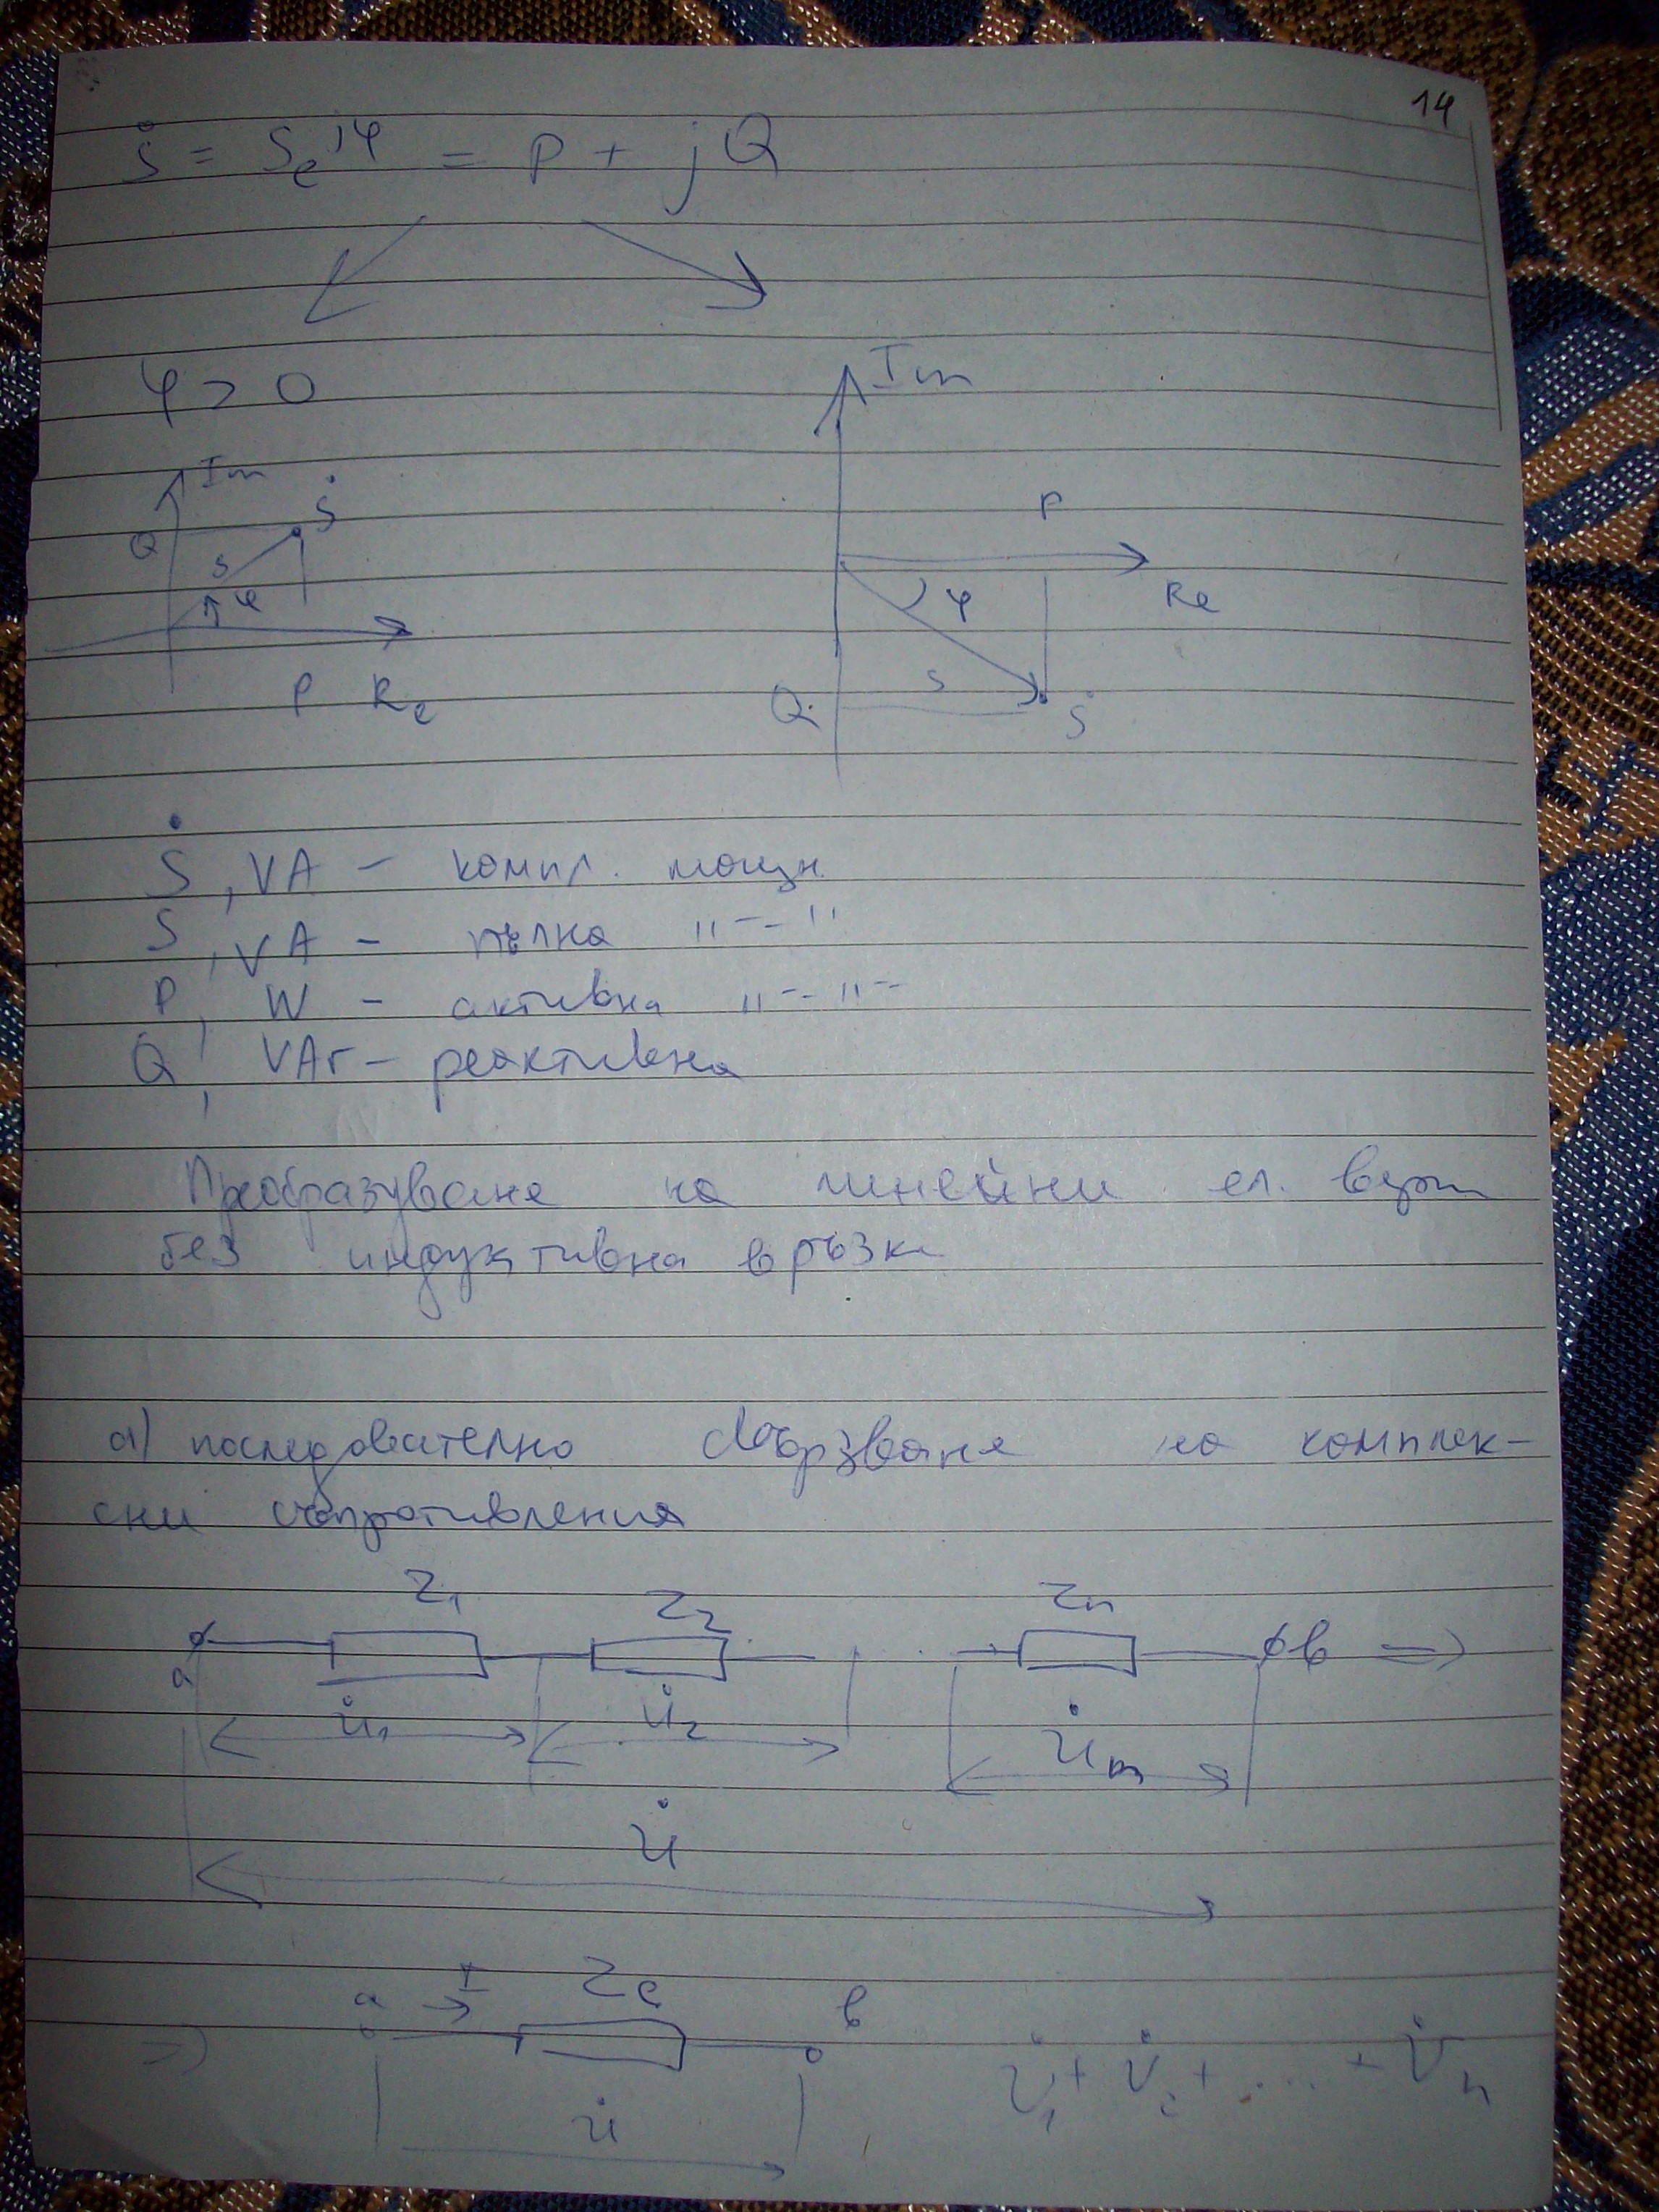 14
Ṡ = Se^jφ = P + jQ
φ > 0
Im
Im
Q
Ṡ
S
φ
P Re
P
Re
φ
S
Q
Ṡ
Ṡ, VA – компл. мощн.
S, VA – пълна "--"
P, W – активна "--"--
Q, VAr – реактивна
Преобразуване на линейни ел. вериги
без индуктивна връзка
а) последователно свързване на комплек-
сни съпротивления
Z₁ Z₂ Zn
a в ⇒
U̇₁ U̇₂ U̇n
U̇
a I Ze в
⇒
U̇
U̇₁ + U̇₂ + .... + U̇n